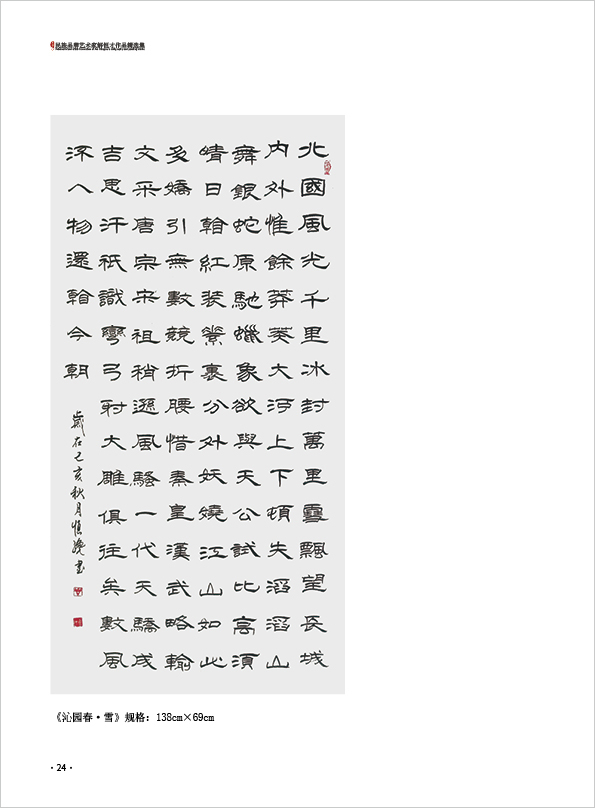 北國風光千里冰封萬里雪飄望長城
内外惟餘莽莽大河上下頓失滔滔山
舞銀蛇原馳蠟象欲與天公試比高須
晴日看紅裝素裹分外妖嬈江山如此
多嬌引無數競折腰惜秦皇漢武略輸
文采唐宗宋祖稍遜風騷一代天驕成
吉思汗衹識彎弓射大雕俱往矣數風
流人物還看今朝
歲在己亥秋月書
《沁园春·雪》规格：138cm×69cm
· 24 ·